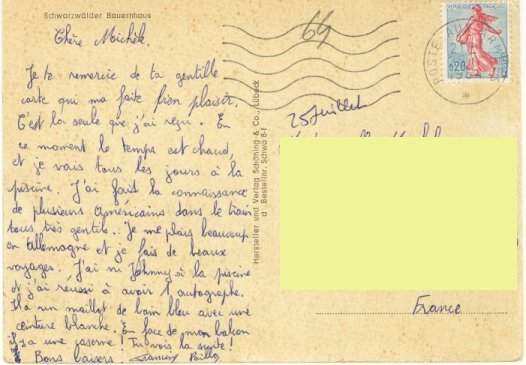 Schwarzwälder Bauernhaus
Chère Michèle.
Je te remercie de ta gentille
carte qui ma faite bien plaisir,
C'est la seule que j'ai reçu. En
ce moment le temps est chaud,
et je vais tous les jours à la
piscine. J'ai fait la connaissance
de plusieurs Américains dans le train
tous très gentils. Je me plais beaucoup
en allemagne et je fais de beaux
voyages. J'ai vu Johnny à la piscine
et j'ai reussi à avoir 1 autographe.
Il a un maillot de bain bleu avec une
ceinture blanche. En face de mon balcon
il y a une caserne! Tu vois la suite!
Bons baisers.
Hersteller und Verlag Schöning & Co., Lübeck
Bestellnr. Schwa
64
25 Juillet
0,20
POSTE
France